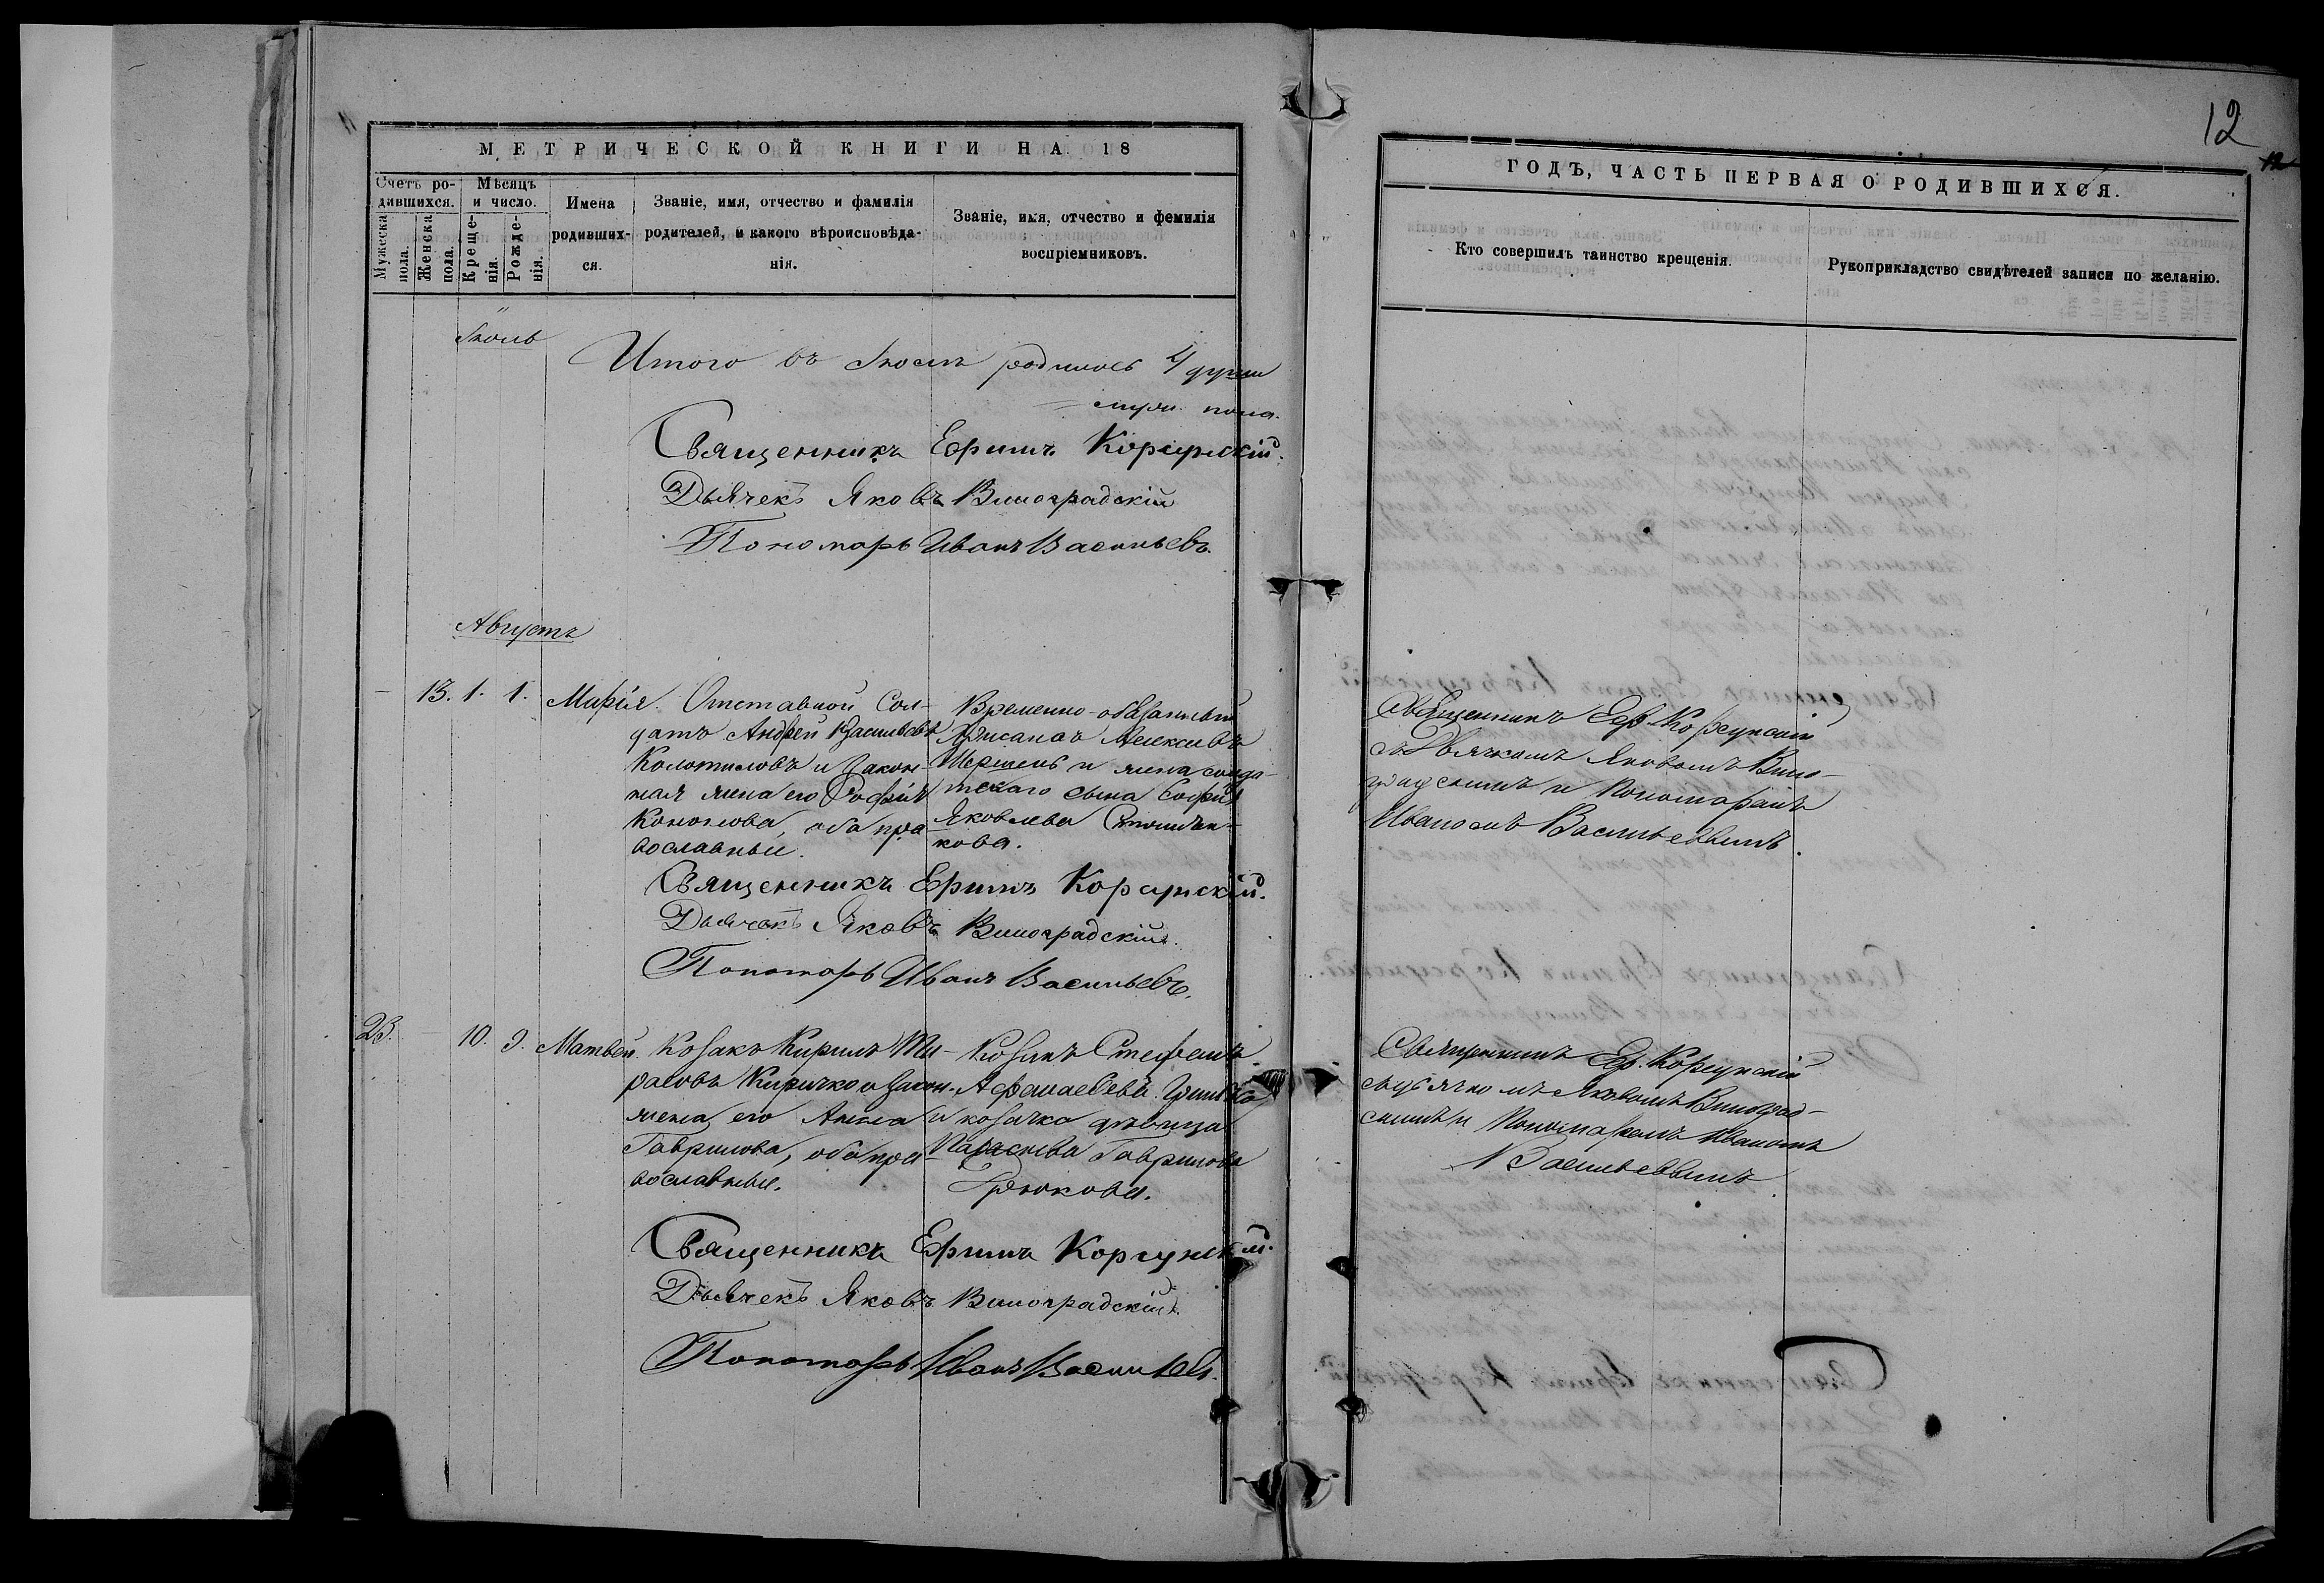 12
12
МЕТРИЧЕСКОЙ КНИГИ НА 18
Счетъ ро-
дившихся.
Мѣсяцъ
и число.
Мужеска
пола.
Женска
пола.
Креще-
нія.
Рожде-
нія.
Имена
родивших-
ся.
Званіе, имя, отчество и фамилія
родителей, и какого вѣроисповѣда-
нія.
Званіе, имя, отчество и фемилія
воспріемниковъ.
ГОДЪ, ЧАСТЬ ПЕРВАЯ О РОДИВШИХСЯ.
Кто совершилъ таинство крещенія.
Рукоприкладство свидѣтелей записи по желанію.
Іюль
Итого въ Іюлѣ родилось 4 души
муж. пола.
Священникъ Ефимъ Корсунскій.
Дьячекъ Яковъ Виноградскій
Пономарь Иванъ Васильевъ.
Августъ
— 13. 1. 1. Марія.
Отставной Сол-
датъ Андрей Васильевъ
Колотиловъ и Закон-
ная жена его Софія
Кононова, оба пра-
вославные.
Временно-обязанный
Алексѣевъ
Шершень и жена солда-
тскаго сына Софія
Яковлева
кова.
Священникъ Еф. Корсунскій
съ Дьячкомъ Яковомъ Вино-
градскимъ и Пономаремъ
Иваномъ Васильевымъ.
Священникъ Ефимъ Корсунскій.
Дьячекъ Яковъ Виноградскій.
Пономарь Иванъ Васильевъ.
23. — 10. 9. Матвѣй.
Козакъ Кирилъ Та-
расовъ Киричко и Закон.
жена его Анна
Гаврилова, оба пра-
вославные.
Козакъ Стефанъ
Афанасьевъ
и козачка дѣвица
Параскева Гаврилова
Крюкова.
Священникъ Еф. Корсунскій
съ дьячкомъ Яковомъ Виноград-
скимъ и Пономаремъ Иваномъ
Васильевымъ
Священникъ Ефимъ Корсунскій.
Дьячекъ Яковъ Виноградскій.
Пономарь Иванъ Васильевъ.